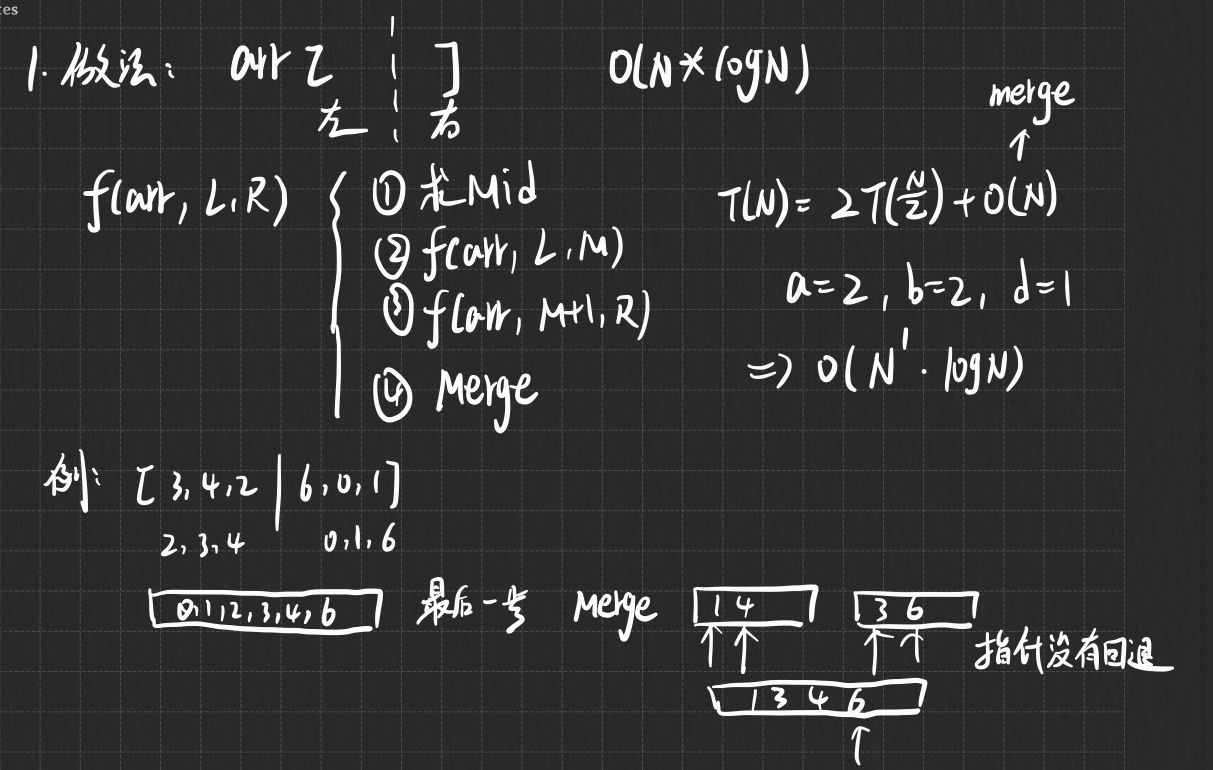 tes
1. 做法: arr [ ] O(N * logN)
左 右
merge
f(arr, L, R) ① 求Mid
② f(arr, L, M)
③ f(arr, M+1, R)
④ Merge
T(N) = 2T(N/2) + O(N)
a=2, b=2, d=1
=> O(N¹ · logN)
例: [3, 4, 2 | 6, 0, 1]
2, 3, 4 0, 1, 6
0, 1, 2, 3, 4, 6 最后一步 Merge 1 4 3 6
指针没有回退
1 3 4 6